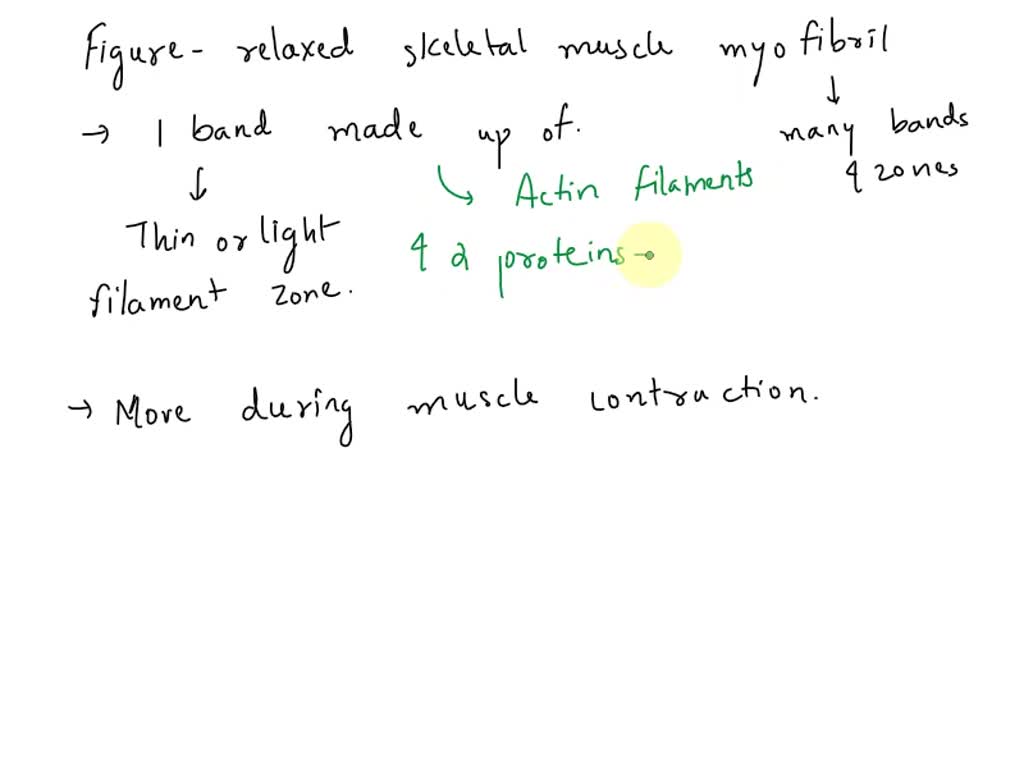 Figure - relaxed skeletal muscle myofibril
→ I band made up of.
↓
many bands
& zones
↓
Thin or light
filament zone.
↳ Actin filaments
& 2 proteins -
→ More during muscle contruction.